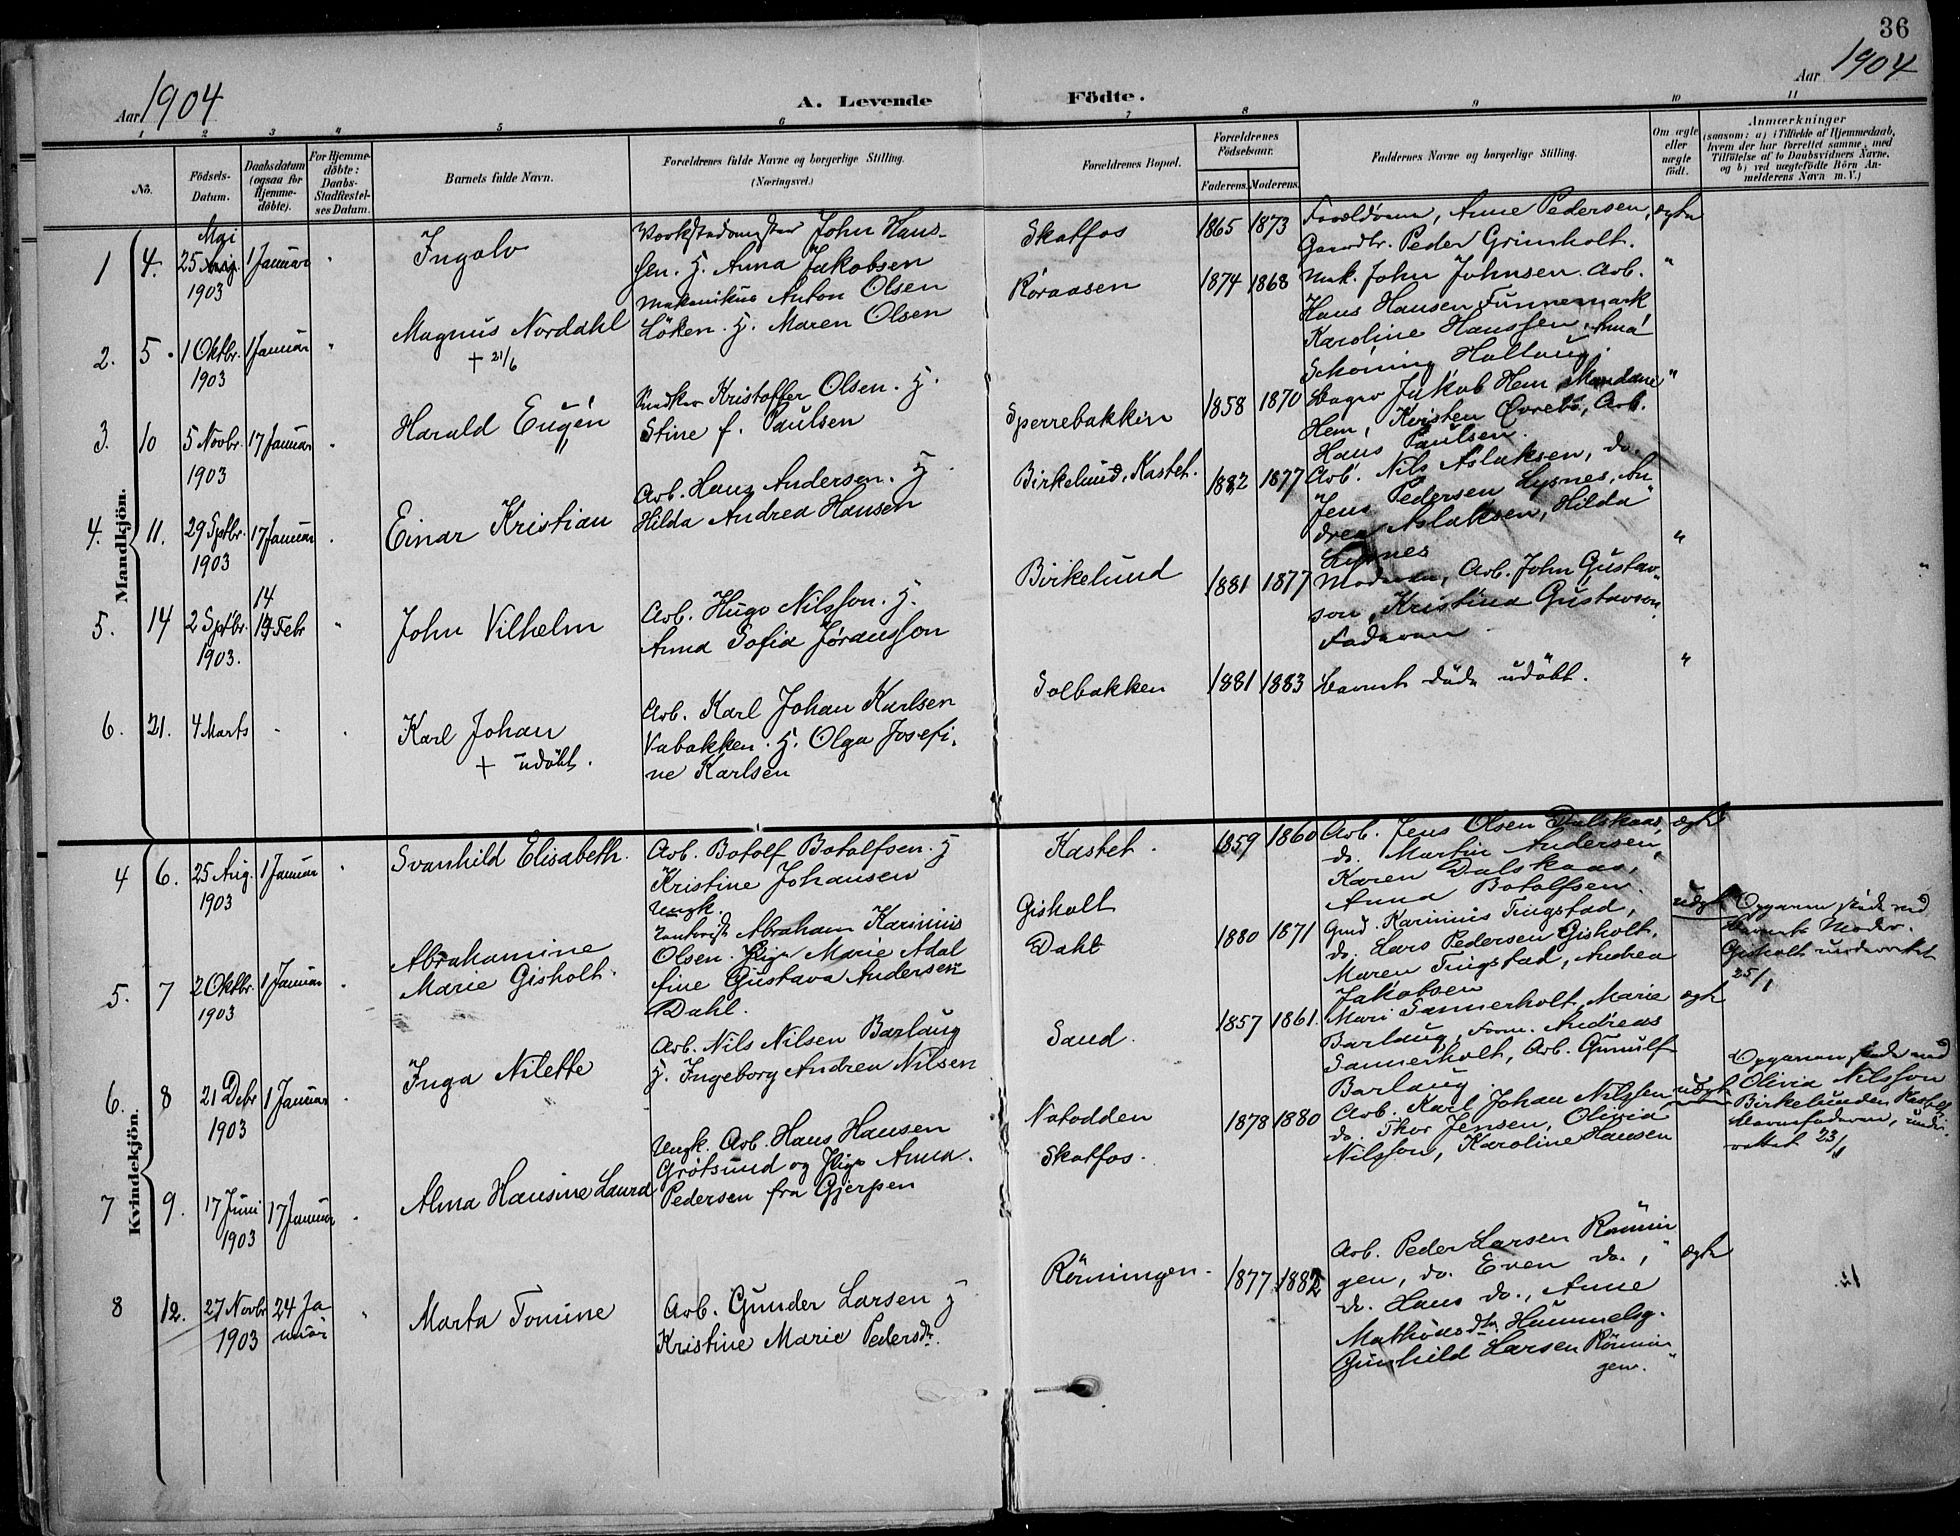 36
Aar 1904
A. Levende Födte.
Aar 1904
1 2 3 4 5 6 7 8 9 10 11
No.
Födsels-Datum.
Daabsdatum (ogsaa for Hjemme-döbte).
For Hjemme-döbte: Daabs-Stadfæstel-ses Datum.
Barnets fulde Navn.
Forældrenes fulde Navne og borgerlige Stilling.
(Næringsvei.)
Forældrenes Bopæl.
Forældrenes Födselsaar.
Faderens. Moderens.
Faddernes Navne og borgerlige Stilling.
Om ægte eller uægte født.
Anmærkninger
(saasom: a) i Tilfælde af Hjemmedaab,
hvem der har forrettet samme, med
Tilföielse af to Daabsvidners Navne,
og b) ved uægtefödte Börn An-
melderens Navn m. V.)
Mandkjön.
1 4. 25 Mai 1903 1 Januar " Ingolv
John Hans-
sen. H. Anna Jakobsen
Skotfos 1865 1873
Forældrene, Anne Pedersen,
Gaardbr. Peder Grimholt.
ægte
2. 5. 1 Oktbr. 1903 1 Januar " Magnus Norddahl
+ 21/6
Mekanikus Anton Olsen
Löken. H. Maren Olsen
Röraasen 1874 1868
Mek. John Johnsen. Arb.
Hans Hansen Funnemark
Karoline Hanssen,
Schöning Hallaug.
"
3. 10 5 Novbr. 1903 17 Januar " Harald Eugén
Kristoffer Olsen. H.
Stine f. Paulsen
Sperrebakken 1858 1870
Jakob Hem, Mandane
Hem, Kristen Övrebö, Arb.
Hans Paulsen.
"
4. 11. 29 Sptbr. 1903 17 Januar " Einar Kristian
Arb. Hans Andersen. H.
Hilda Andrea Hansen
Birkelund, Kastet. 1882 1877
Arb. Nils Aslaksen, do.
Jens Pedersen Lysnes, An
drea Aslaksen, Hilda
Lysnes
"
5. 14 2 Sptbr. 1903. 14 Febr " John Vilhelm
Arb. Hugo Nilsson. H.
Anna Sofia Jöransson
Birkelund 1881 1877
Moderen, Arb. John Gustav-
son, Kristina Gustavson,
Faderen
"
6. 21. 4 Marts " " Karl Johan
+ udöbt.
Arb. Karl Johan Karlsen
Vabakken. H. Olga Josefi-
ne Karlsen
Solbakken 1881 1883
Barnet döde udöbt.
"
Kvindekjön.
4 6. 25 Aug. 1903 1 Januar " Svanhild Elisabeth.
Arb. Botolf Botolfsen. H
Kristine Johansen
Kastet. 1859 1860
Arb. Jens Olsen Dalskaas,
do. Martin Andersen,
Karen Dalskaas,
Anna Botolfsen.
ægte
5. 7 2 Oktbr. 1903 1 Januar " Abrahamine
Marie Gisholt.
Ungk.
Abraham Karinius
Olsen. Pige Marie Adol
fine Gustava Andersen
Dahl.
Gisholt
Dahl 1880 1871
Gmd. Karinius Tingstad,
do. Lars Pedersen Gisholt,
Maren Tingstad, Andrea
Jakobsen
uægte
Opgaven skede ved
Barnets Moder.
Gisholt underrettet
25/1
6. 8 21 Debr 1903 1 Januar " Inga Nilette
Arb. Nils Nilsen Barlaug
H. Ingeborg Andrea Nilsen
Sand. 1857 1861.
Mari Sannerholt, Marie
Barlaug, Andreas
Sannerholt, Arb. Gunulf
Barlaug.
ægte
7 9. 17 Juni 1903 17 Januar " Alma Hansine Laura
Ungk. Arb. Hans Hansen
Grötsund og Pige Anna
Pedersen fra Gjerpen
Notodden 1878 1880
Skotfos.
Arb. Karl Johan Nilssen
do. Thor Jensen, Olivia
Nilsson, Karoline Hansen
uægte
Opgaven skede ved
Olivia Nilsson
Birkelunden Kastet
Barnefaderen, under-
rettet 23/1
8 12. 27 Novbr 1903 24 Ja nuar " Marta Tomine
Arb. Gunder Larsen H
Kristine Marie Pedersdtr.
Rönningen. 1877 1882
Arb. Peder Larsen Rönnin
gen, do. Even do.,
do. Hans do., Anne
Mathisdtr. Hummelsg.
Gunhild Larsen Rönnin
gen.
ægte